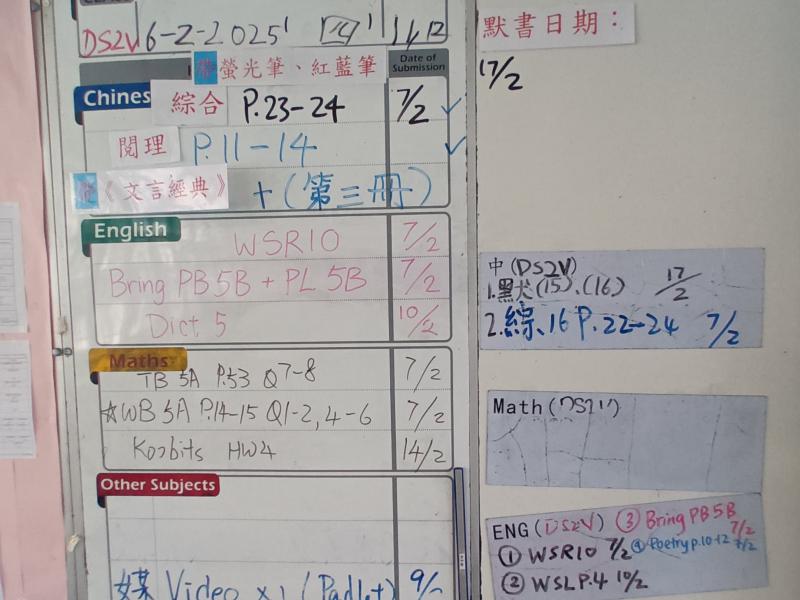 DS2V 6-2-2025 (四)
默書日期：
17/2
螢光筆、紅藍筆 Date of Submission
Chinese 綜合 P.23-24 7/2 ✓
閱理 P.11-14 ✓
《文言經典》 + (第三冊)
English
WSR10 7/2
Bring PB 5B + PL 5B 7/2
Dict 5 10/2
Maths
TB 5A P.53 Q7-8 7/2
☆WB 5A P.14-15 Q1-2, 4-6 7/2
HW4 14/2
Other Subjects
Video x1 (Padlet)
中 (DS2V)
1. (15)、(16) 17/2
2.綜、16 P.22-24 7/2
Math (DS2V)
ENG (DS2V) ③ Bring PB 5B 7/2
① WSR10 7/2 ④ Poetry p.10-12 7/2
② WSL P.4 10/2